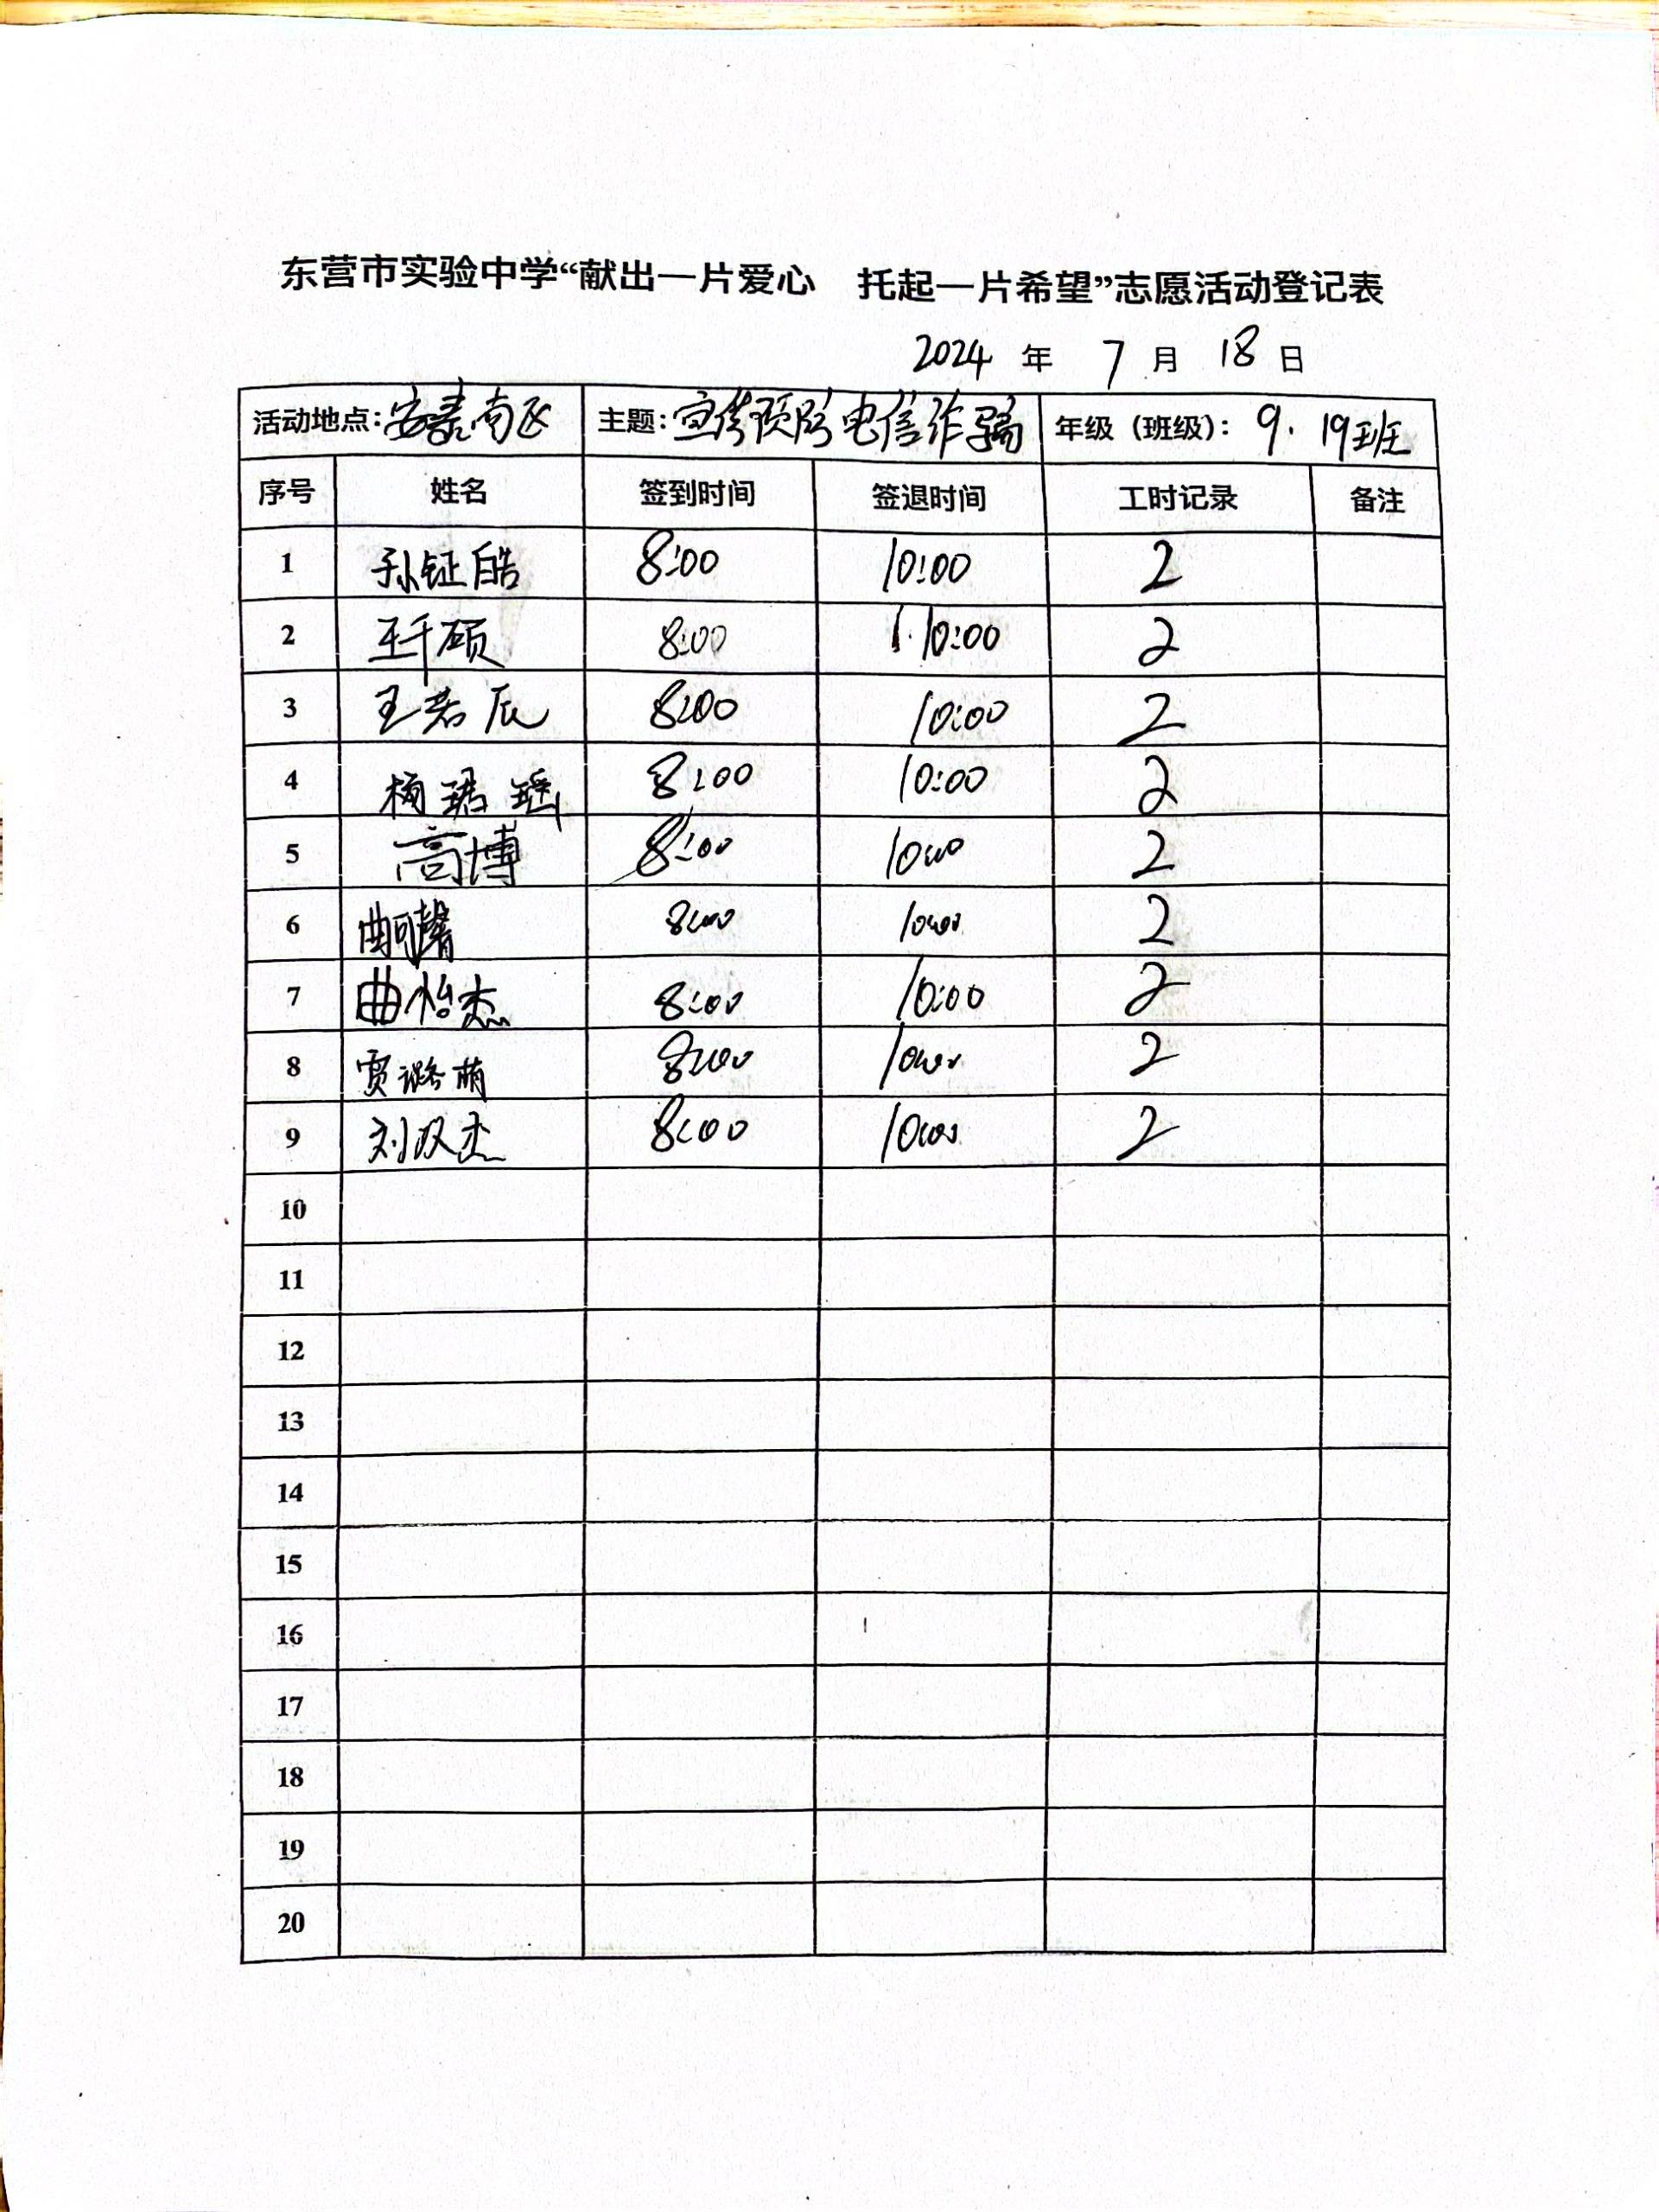 东营市实验中学“献出一片爱心 托起一片希望”志愿活动登记表
2024 年 7 月 18 日
活动地点：安泰南区 主题：宣传预防电信诈骗 年级（班级）：9.19班
序号 姓名 签到时间 签退时间 工时记录 备注
1 孙钲皓 8:00 10:00 2
2 王千硕 8:00 10:00 2
3 王若辰 8:00 10:00 2
4 杨珺瑶 8:00 10:00 2
5 高博 8:00 10:00 2
6 曲可馨 8:00 10:00 2
7 曲怡杰 8:00 10:00 2
8 贾潞萌 8:00 10:00 2
9 刘双杰 8:00 10:00 2
10
11
12
13
14
15
16
17
18
19
20